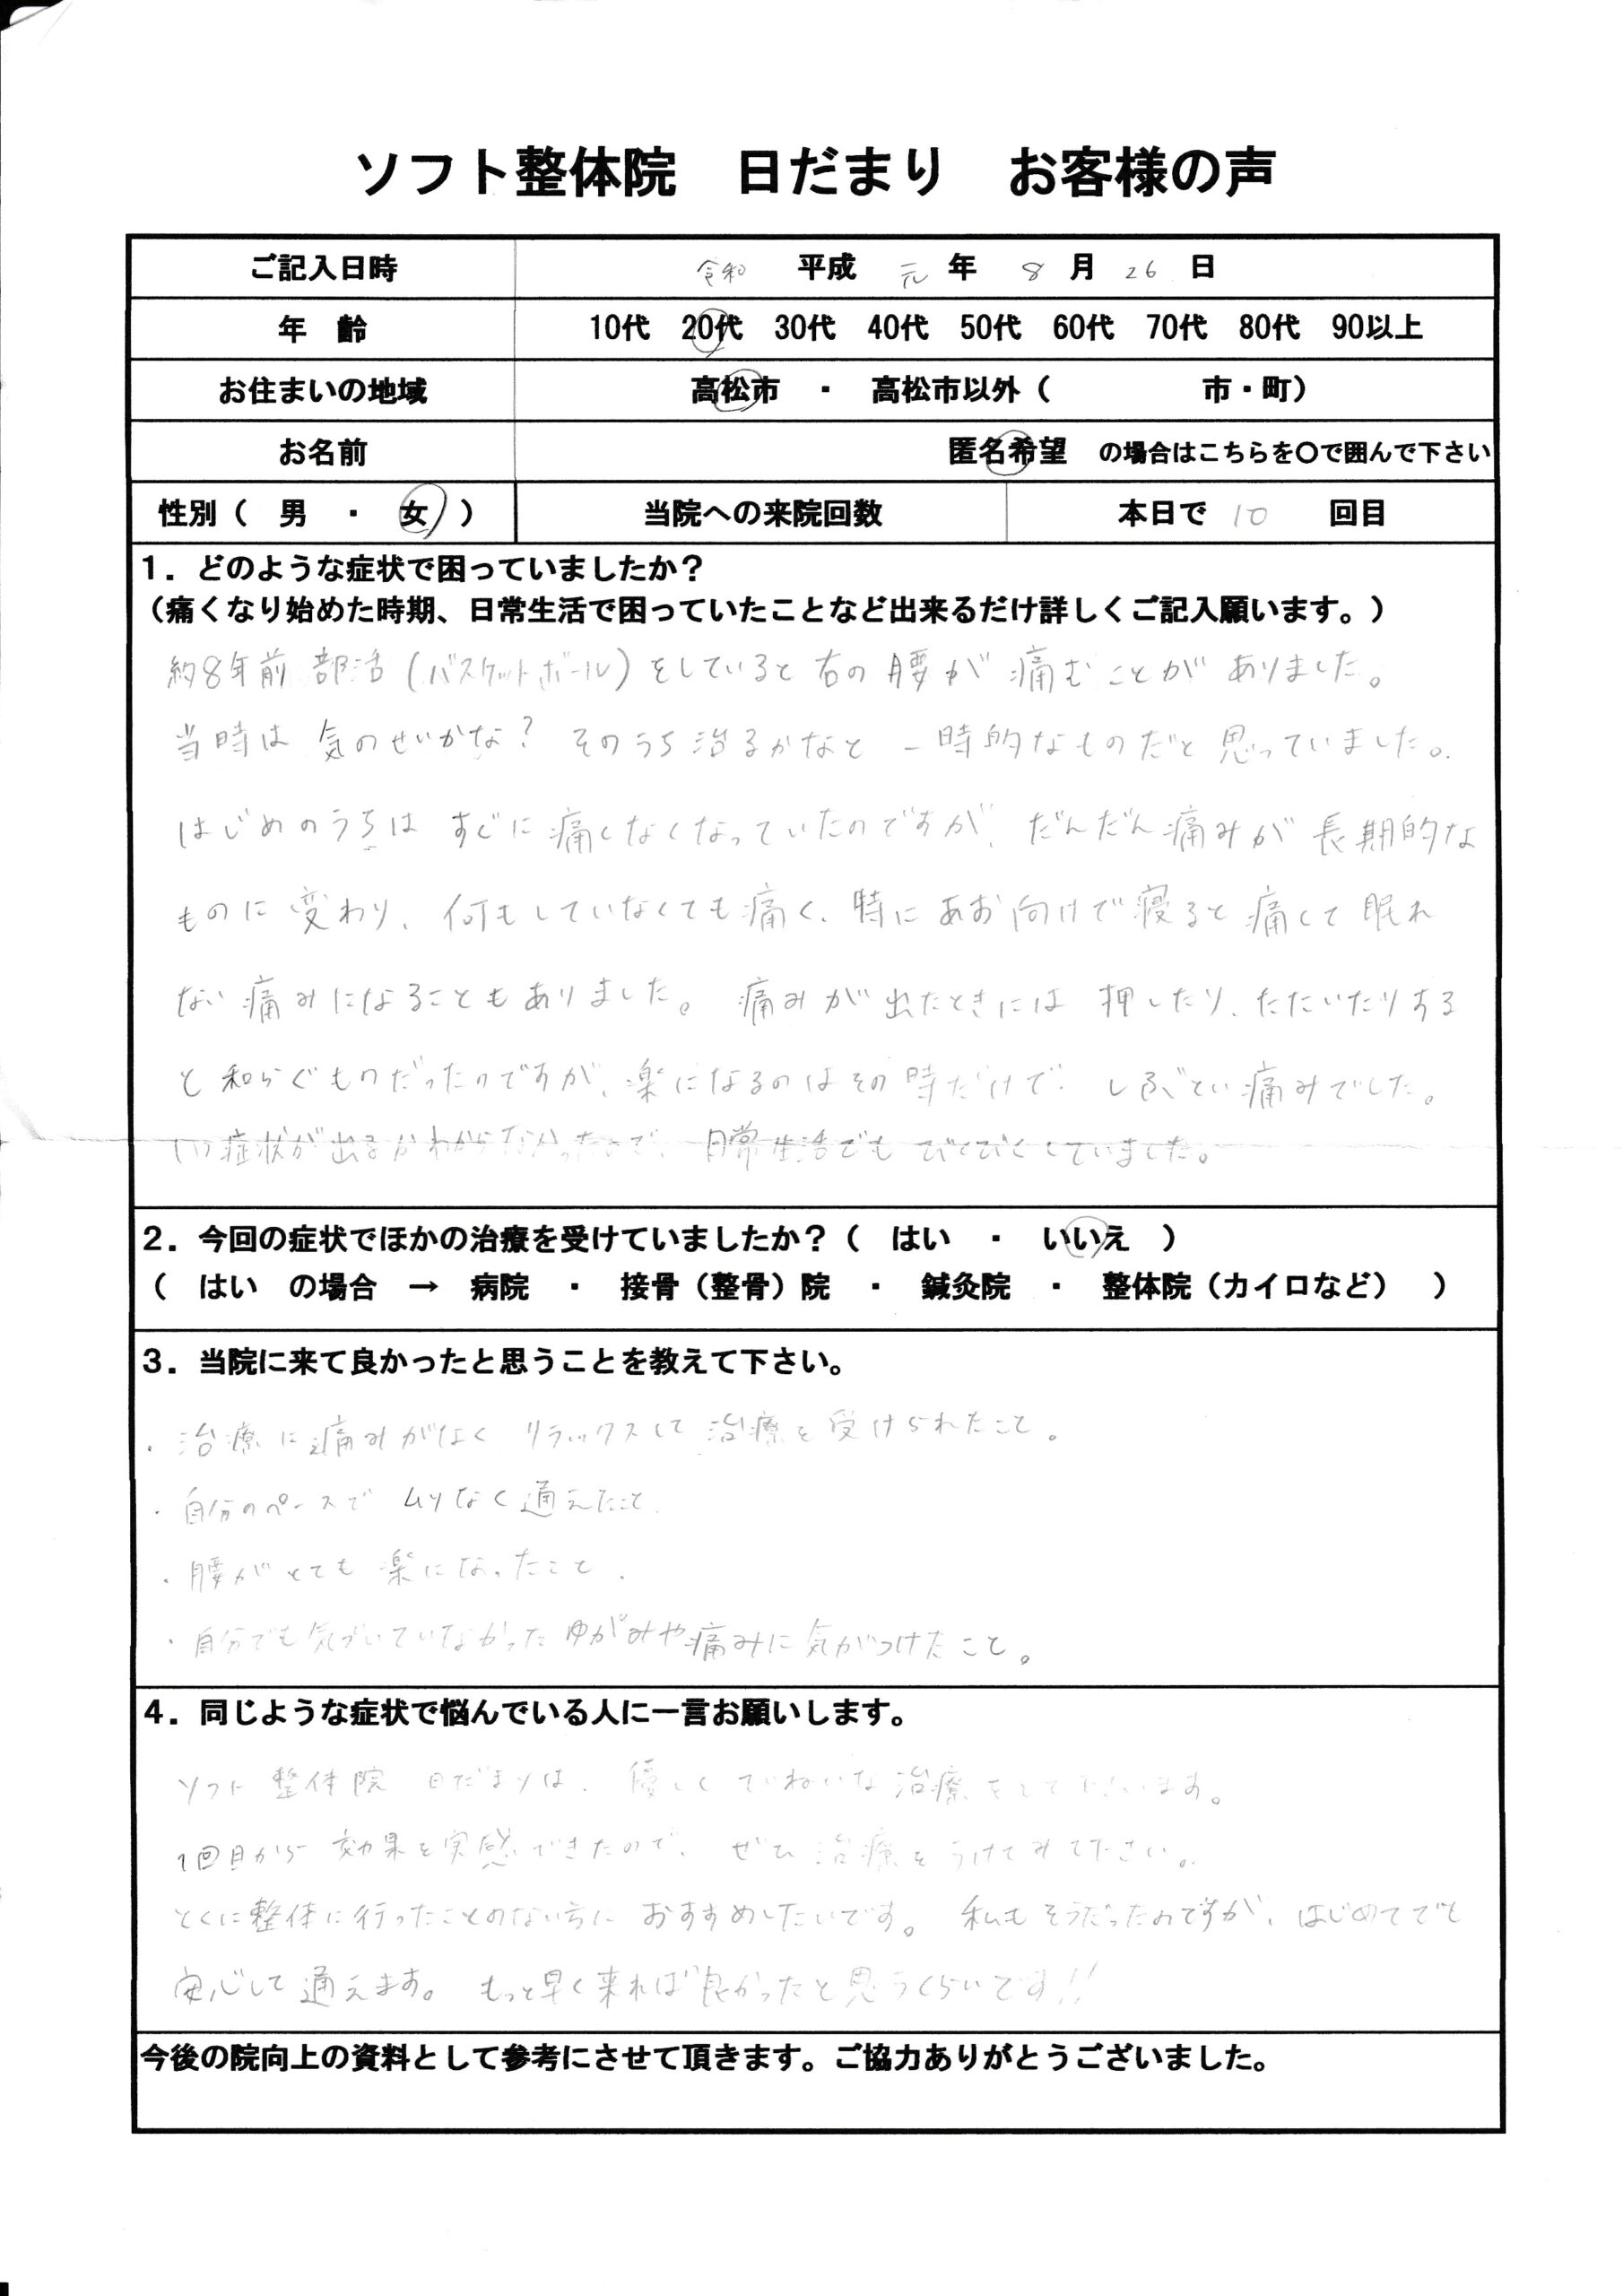 ソフト整体院 日だまり お客様の声
ご記入日時 令和 平成 元 年 8 月 26 日
年 齢 10代 20代 30代 40代 50代 60代 70代 80代 90以上
お住まいの地域 高松市 ・ 高松市以外( 市・町)
お名前 匿名希望 の場合はこちらを〇で囲んで下さい
性別( 男 ・ 女 ) 当院への来院回数 本日で 10 回目
1.どのような症状で困っていましたか?
(痛くなり始めた時期、日常生活で困っていたことなど出来るだけ詳しくご記入願います。)
約8年前 部活(バスケットボール)をしていると右の腰が痛むことがありました。
当時は気のせいかな? そのうち治るかなと 一時的なものだと思っていました。
はじめのうちは すぐに痛くなくなっていたのですが、だんだん痛みが長期的な
ものに変わり、何もしていなくても痛く、特にあお向けで寝ると痛くて眠れ
ない痛みになることもありました。 痛みが出たときには 押したり、たたいたりする
と和らぐものだったのですが、楽になるのはその時だけで しぶとい痛みでした。
いつ症状が出るかわからなかったので、日常生活でも びくびくしていました。
2.今回の症状でほかの治療を受けていましたか?( はい ・ いいえ )
( はい の場合 → 病院 ・ 接骨(整骨)院 ・ 鍼灸院 ・ 整体院(カイロなど) )
3.当院に来て良かったと思うことを教えて下さい。
・治療に痛みがなく リラックスして治療を受けられたこと。
・自分のペースで ムリなく通えたこと.
・腰がとても楽になったこと.
・自分でも気づいていなかった ゆがみや痛みに気がつけたこと。
4.同じような症状で悩んでいる人に一言お願いします。
ソフト整体院 日だまりは、優しくていねいな治療をして下さいます。
1回目から 効果を実感できたので、ぜひ治療をうけてみて下さい。
とくに整体に行ったことのない方に おすすめしたいです。 私もそうだったのですが、はじめてでも
安心して通えます。 もっと早く来れば良かったと思うくらいです!!
今後の院向上の資料として参考にさせて頂きます。ご協力ありがとうございました。